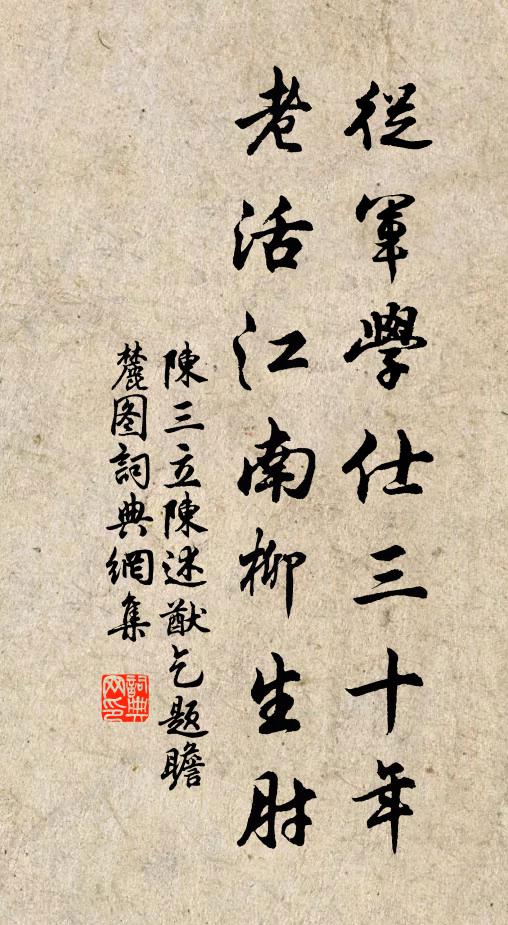 從軍學仕三十年
老活江南柳生肘
陳三立陳述猷乞題瞻
麓圖詞典網集
詞典網印